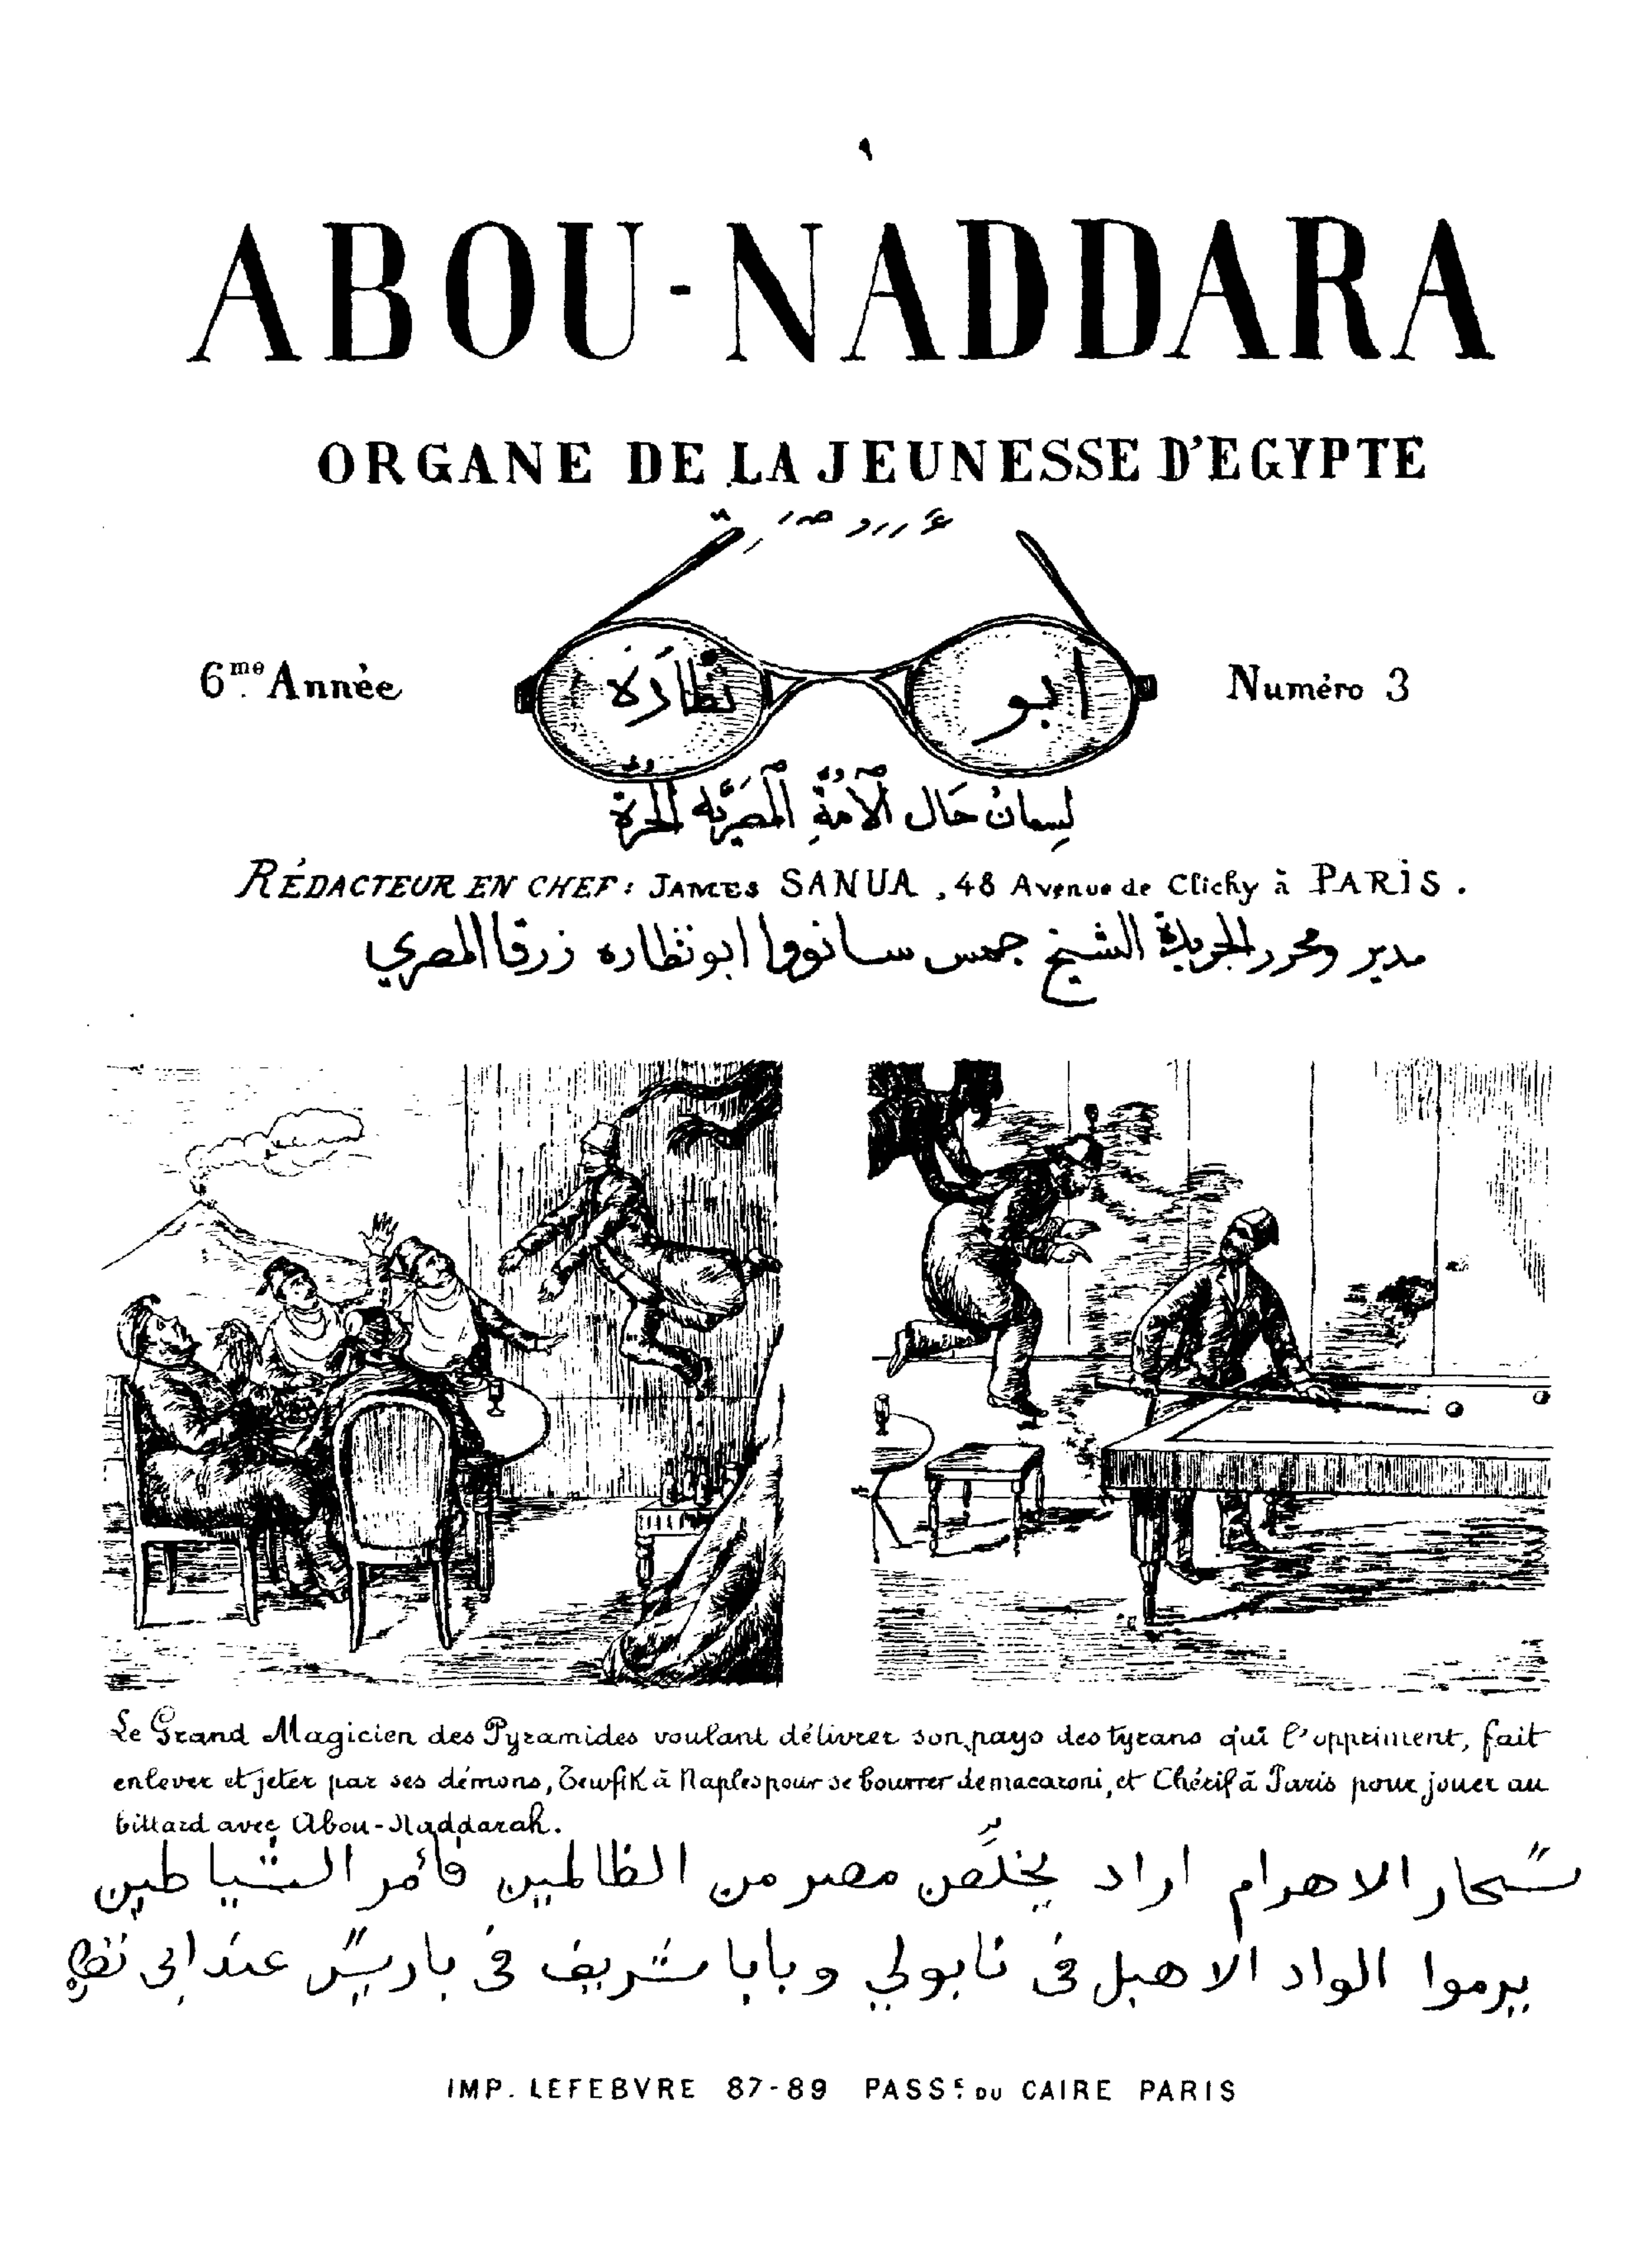 ABOU-NADDARA
ORGANE DE LA JEUNESSE D'EGYPTE
6me Année
ابو نظارة
Numéro 3
لسان حال الأمة المصرية الحرة
RÉDACTEUR EN CHEF: JAMES SANUA, 48 Avenue de Clichy à PARIS.
مدير ومحرر الجريدة الشيخ جمس سانووا ابو نظاره زرقا المصري
Le Grand Magicien des Pyramides voulant délivrer son pays des tyrans qui l'oppriment, fait
enlever et jeter par ses démons, Tewfik à Naples pour se bourrer de macaroni, et Chérif à Paris pour jouer au
billard avec Abou-Naddarah.
سحار الاهرام اراد يخلّص مصر من الظالمين فأمر الشياطين
يرموا الواد الاهبل فى نابولي وبابا شريف فى باريس عند ابى
IMP. LEFEBVRE 87-89 PASSE DU CAIRE PARIS